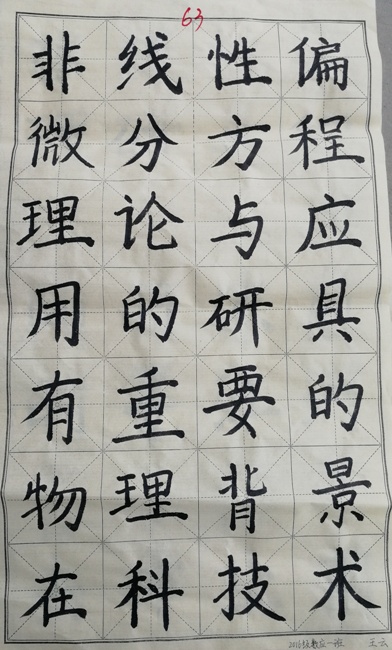 63
非线性偏
微分方程
理论与应
用的研具
有重要的
物理背景
在科技术
2016级数应一班 王云